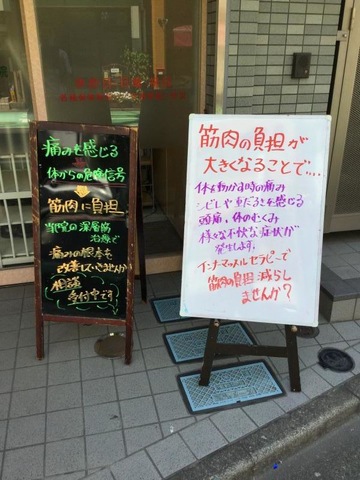 痛みを感じる
体からの危険信号
筋肉に負担
当院の深層筋
治療で
痛みの根本を
改善していきませんか
相談
受付中です
筋肉の負担が
大きくなることで....
体を動かす時の痛み
シビレや重だるさを感じる
頭痛、体のむくみ
様々な不快な症状が
発生します。
インナーマッスルセラピーで
筋肉の負担減らし
ませんか?